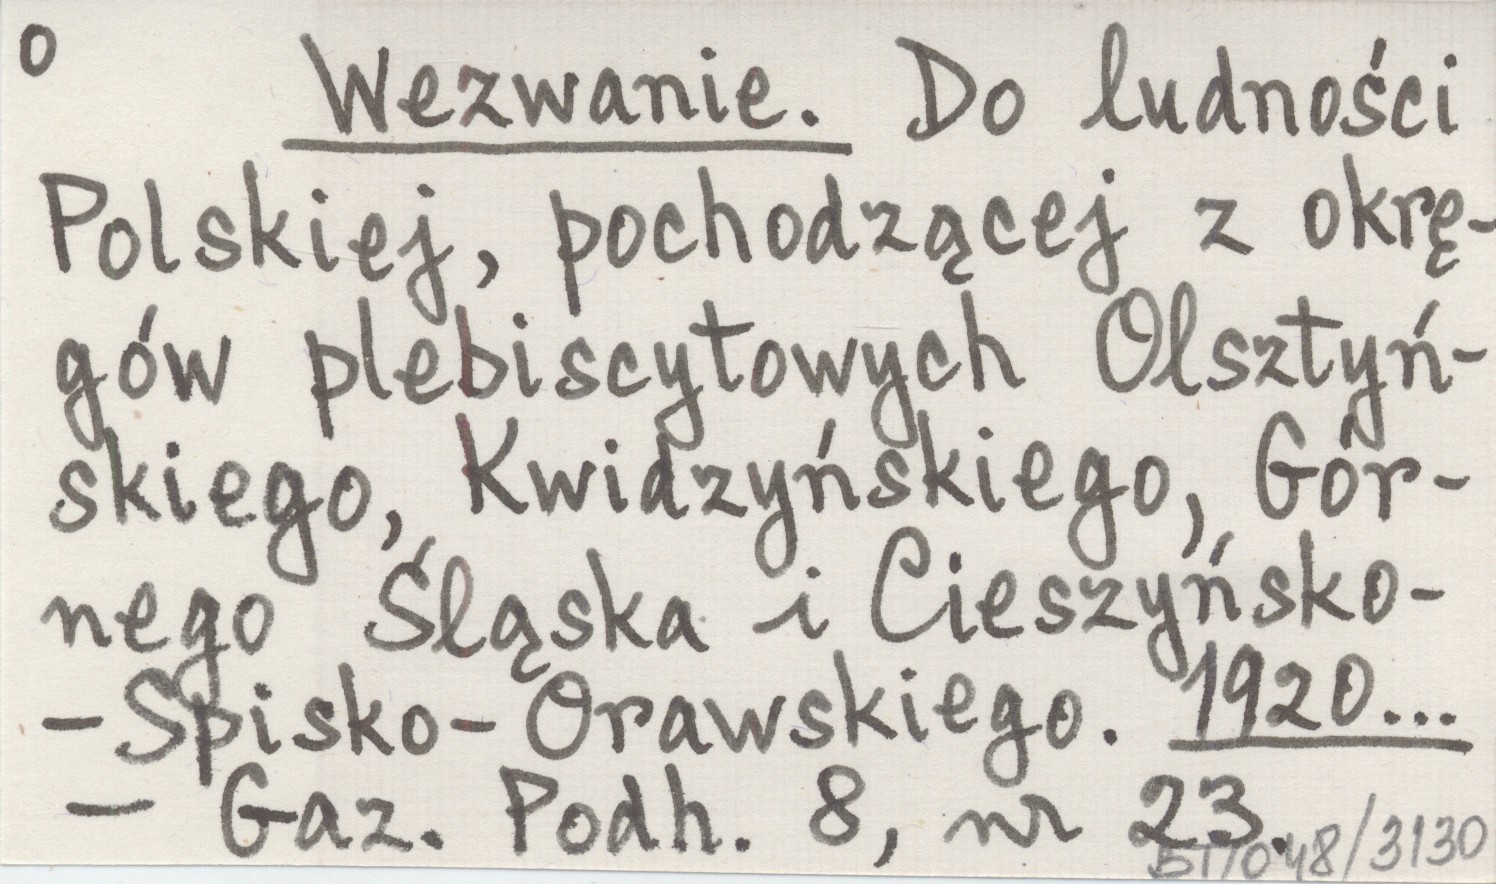 o Wezwanie. Do ludności
Polskiej, pochodzącej z okrę-
gów plebiscytowych Olsztyń-
skiego, Kwidzyńskiego, Gór-
nego Śląska i Cieszyńsko-
-Spisko-Orawskiego. 1920...
- Gaz. Podh. 8, nr 23.
BT/048/3130